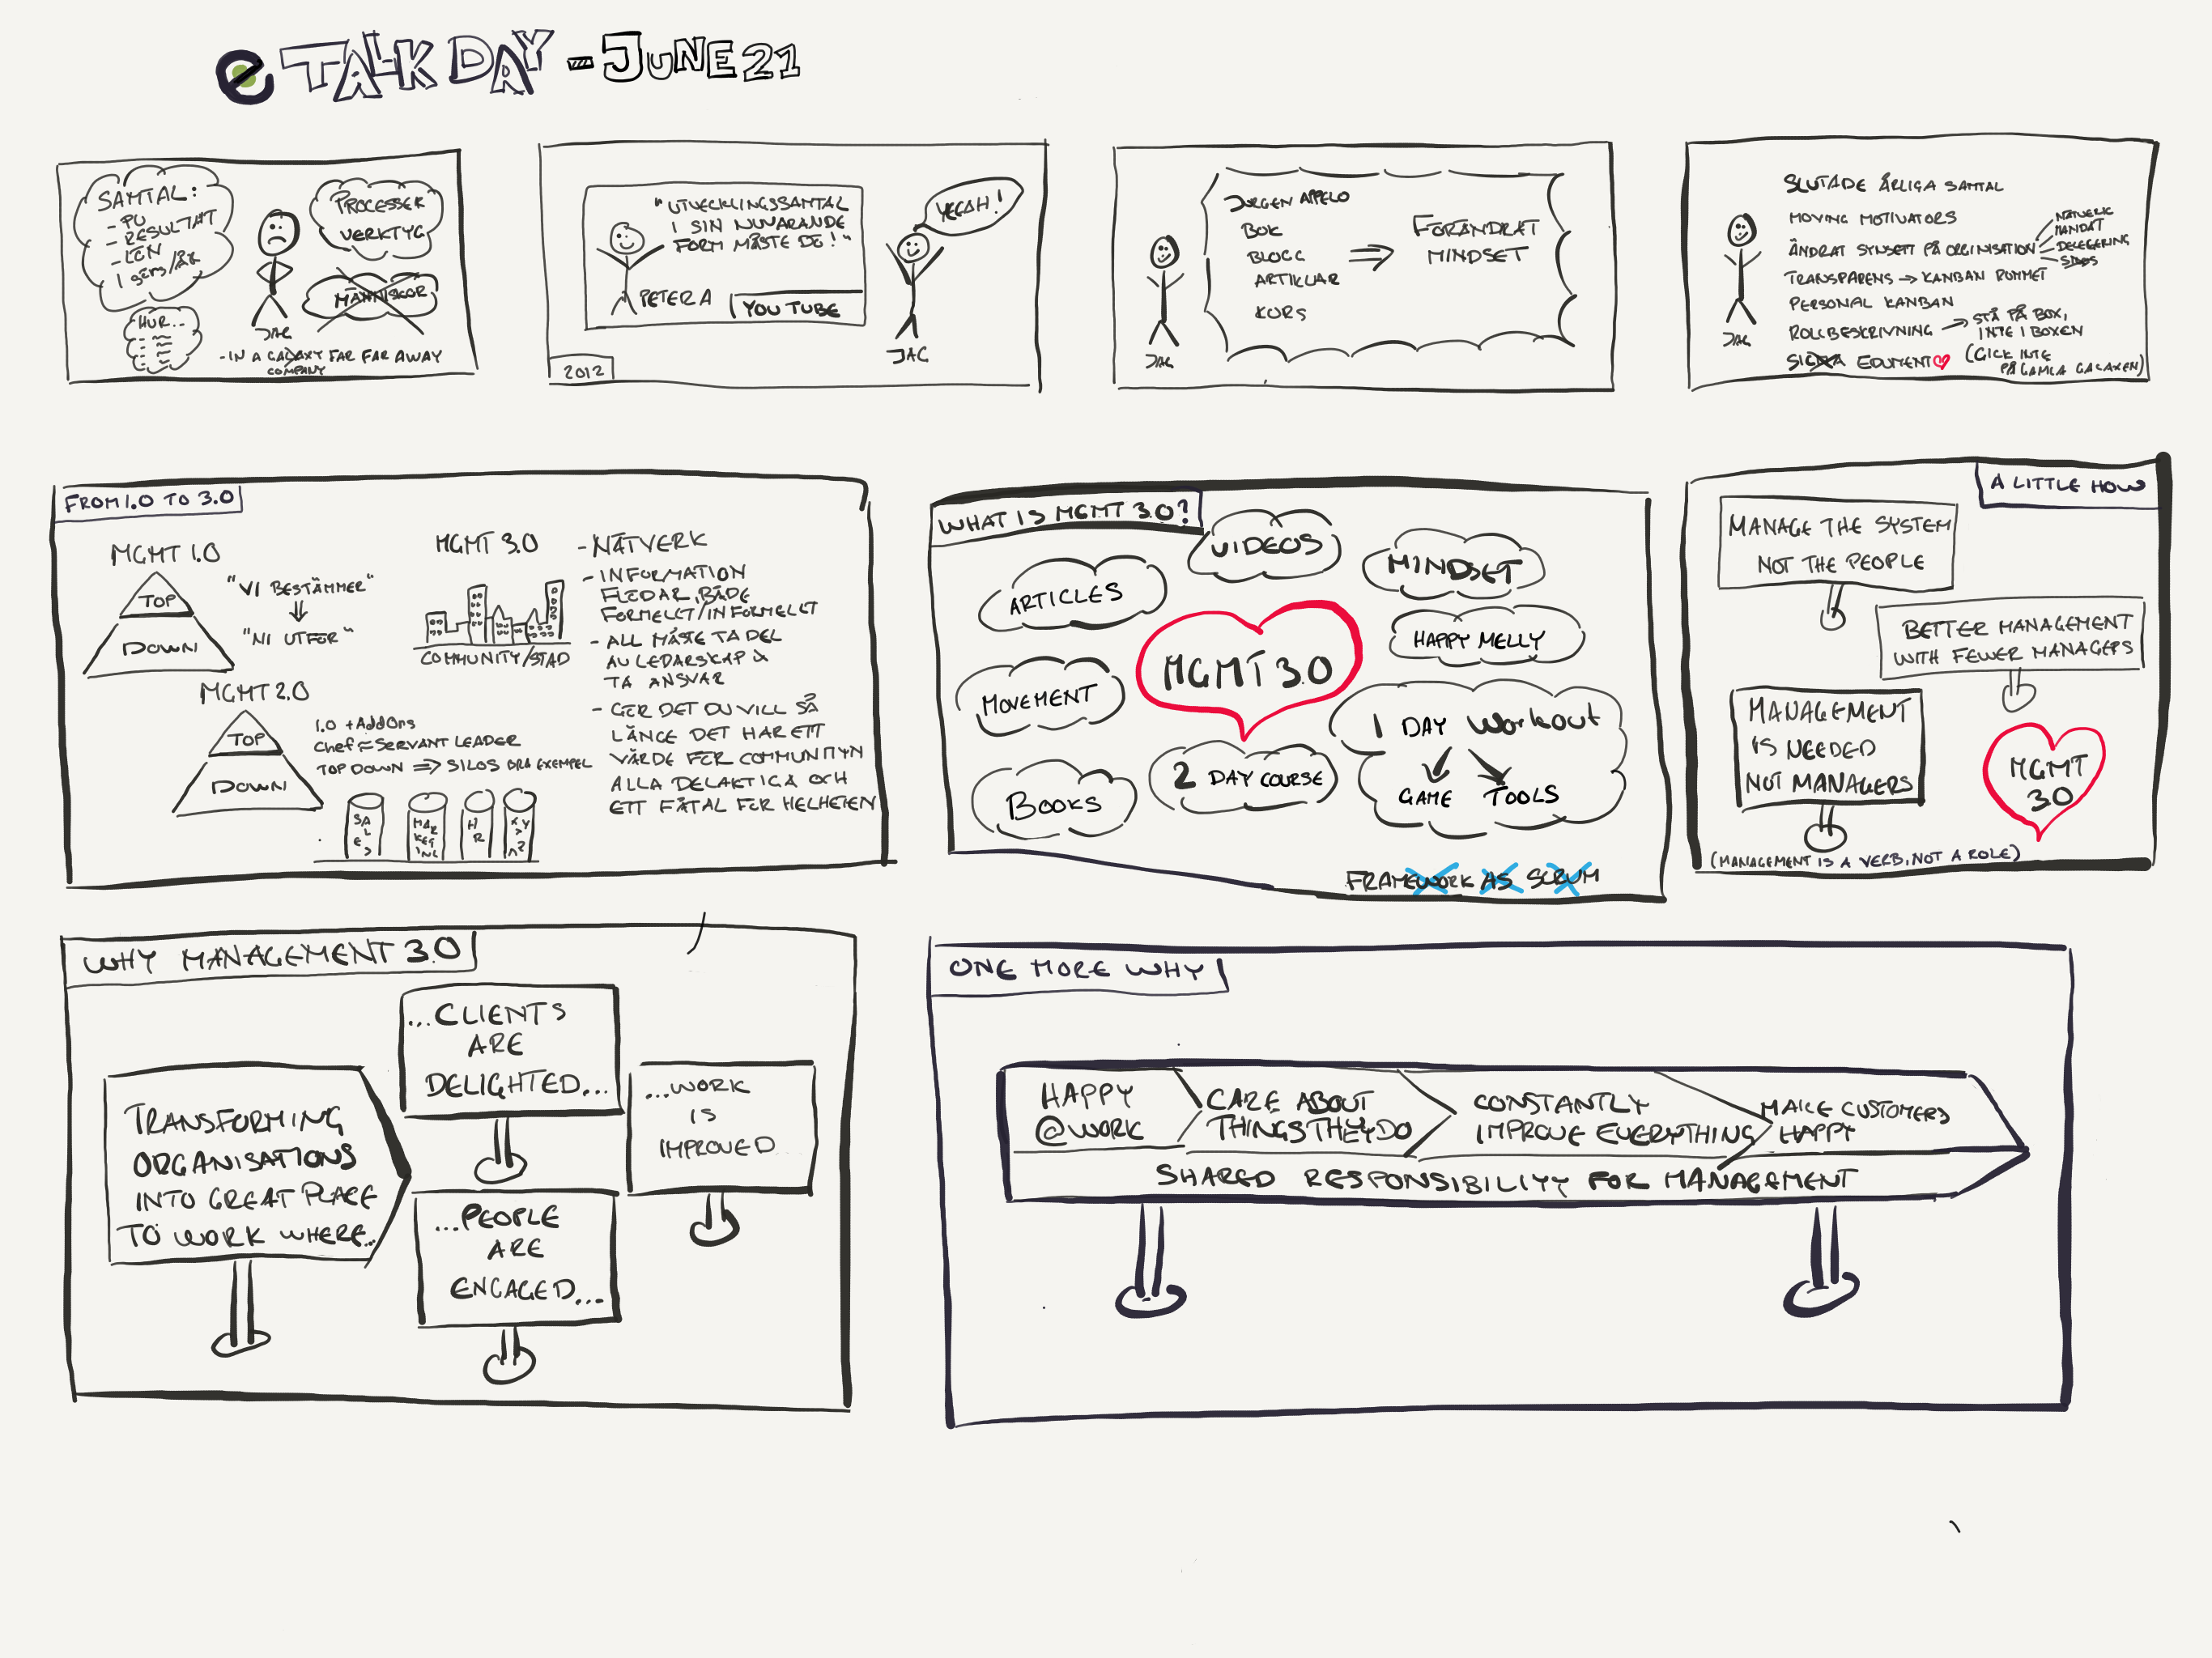 e TALK DAY - JUNE 21
SAMTAL:
- PU
- RESULTAT
- LÖN
1 gång/år
HUR...
PROCESSER
VERKTYG
MÄNNISKOR
JAG
- IN A GALAXY FAR FAR AWAY
COMPANY
"UTVECKLINGSSAMTAL
I SIN NUVARANDE
FORM MÅSTE DÖ!"
PETER A
YOU TUBE
YEEAH!
JAG
2012
JURGEN APPELO
BOK
BLOGG
ARTIKLAR
KURS
FÖRÄNDRAT
MINDSET
JAG
SLUTADE ÅRLIGA SAMTAL
MOVING MOTIVATORS
ÄNDRAT SYNSETT PÅ ORGINISATION
NÄTVERK
MANDAT
DELEGERING
SILOS
TRANSPARENS → KANBAN RUMMET
PERSONAL KANBAN
ROLLBESKRIVNING → STÅ PÅ BOX,
INTE I BOXEN
EDUMENT
(GICK INTE
PÅ GAMLA GALAXEN)
JAG
FROM 1.0 TO 3.0
MGMT 1.0
TOP
DOWN
"VI BESTÄMMER"
"NI UTFÖR"
MGMT 2.0
TOP
DOWN
1.0 + AddOns
Chef = SERVANT LEADER
TOP DOWN => SILOS BRA EXEMPEL
SALES
MARKETING
HR
MGMT 3.0
COMMUNITY/STAD
- NÄTVERK
- INFORMATION
FLÖDAR, BÅDE
FORMELLT/INFORMELLT
- ALL MÅSTE TA DEL
AV LEDARSKAP &
TA ANSVAR
- GÖR DET DU VILL SÅ
LÄNGE DET HAR ETT
VÄRDE FÖR COMMUNITYN
ALLA DELAKTIGA OCH
ETT FÅTAL FÖR HELHETEN
WHAT IS MGMT 3.0?
VIDEOS
MINDSET
ARTICLES
HAPPY MELLY
MGMT 3.0
MOVEMENT
1 DAY Workout
GAME TOOLS
2 DAY COURSE
BOOKS
FRAMEWORK AS SCRUM
A LITTLE HOW
MANAGE THE SYSTEM
NOT THE PEOPLE
BETTER MANAGEMENT
WITH FEWER MANAGERS
MANAGEMENT
IS NEEDED
NOT MANAGERS
MGMT
3.0
(MANAGEMENT IS A VERB, NOT A ROLE)
WHY MANAGEMENT 3.0
TRANSFORMING
ORGANISATIONS
INTO GREAT PLACE
TO WORK WHERE...
...CLIENTS
ARE
DELIGHTED...
...PEOPLE
ARE
ENGAGED...
...WORK
IS
IMPROVED
ONE MORE WHY
HAPPY
@WORK
CARE ABOUT
THINGS THEY DO
CONSTANTLY
IMPROVE EVERYTHING
MAKE CUSTOMERS
HAPPY
SHARED RESPONSIBILITY FOR MANAGEMENT